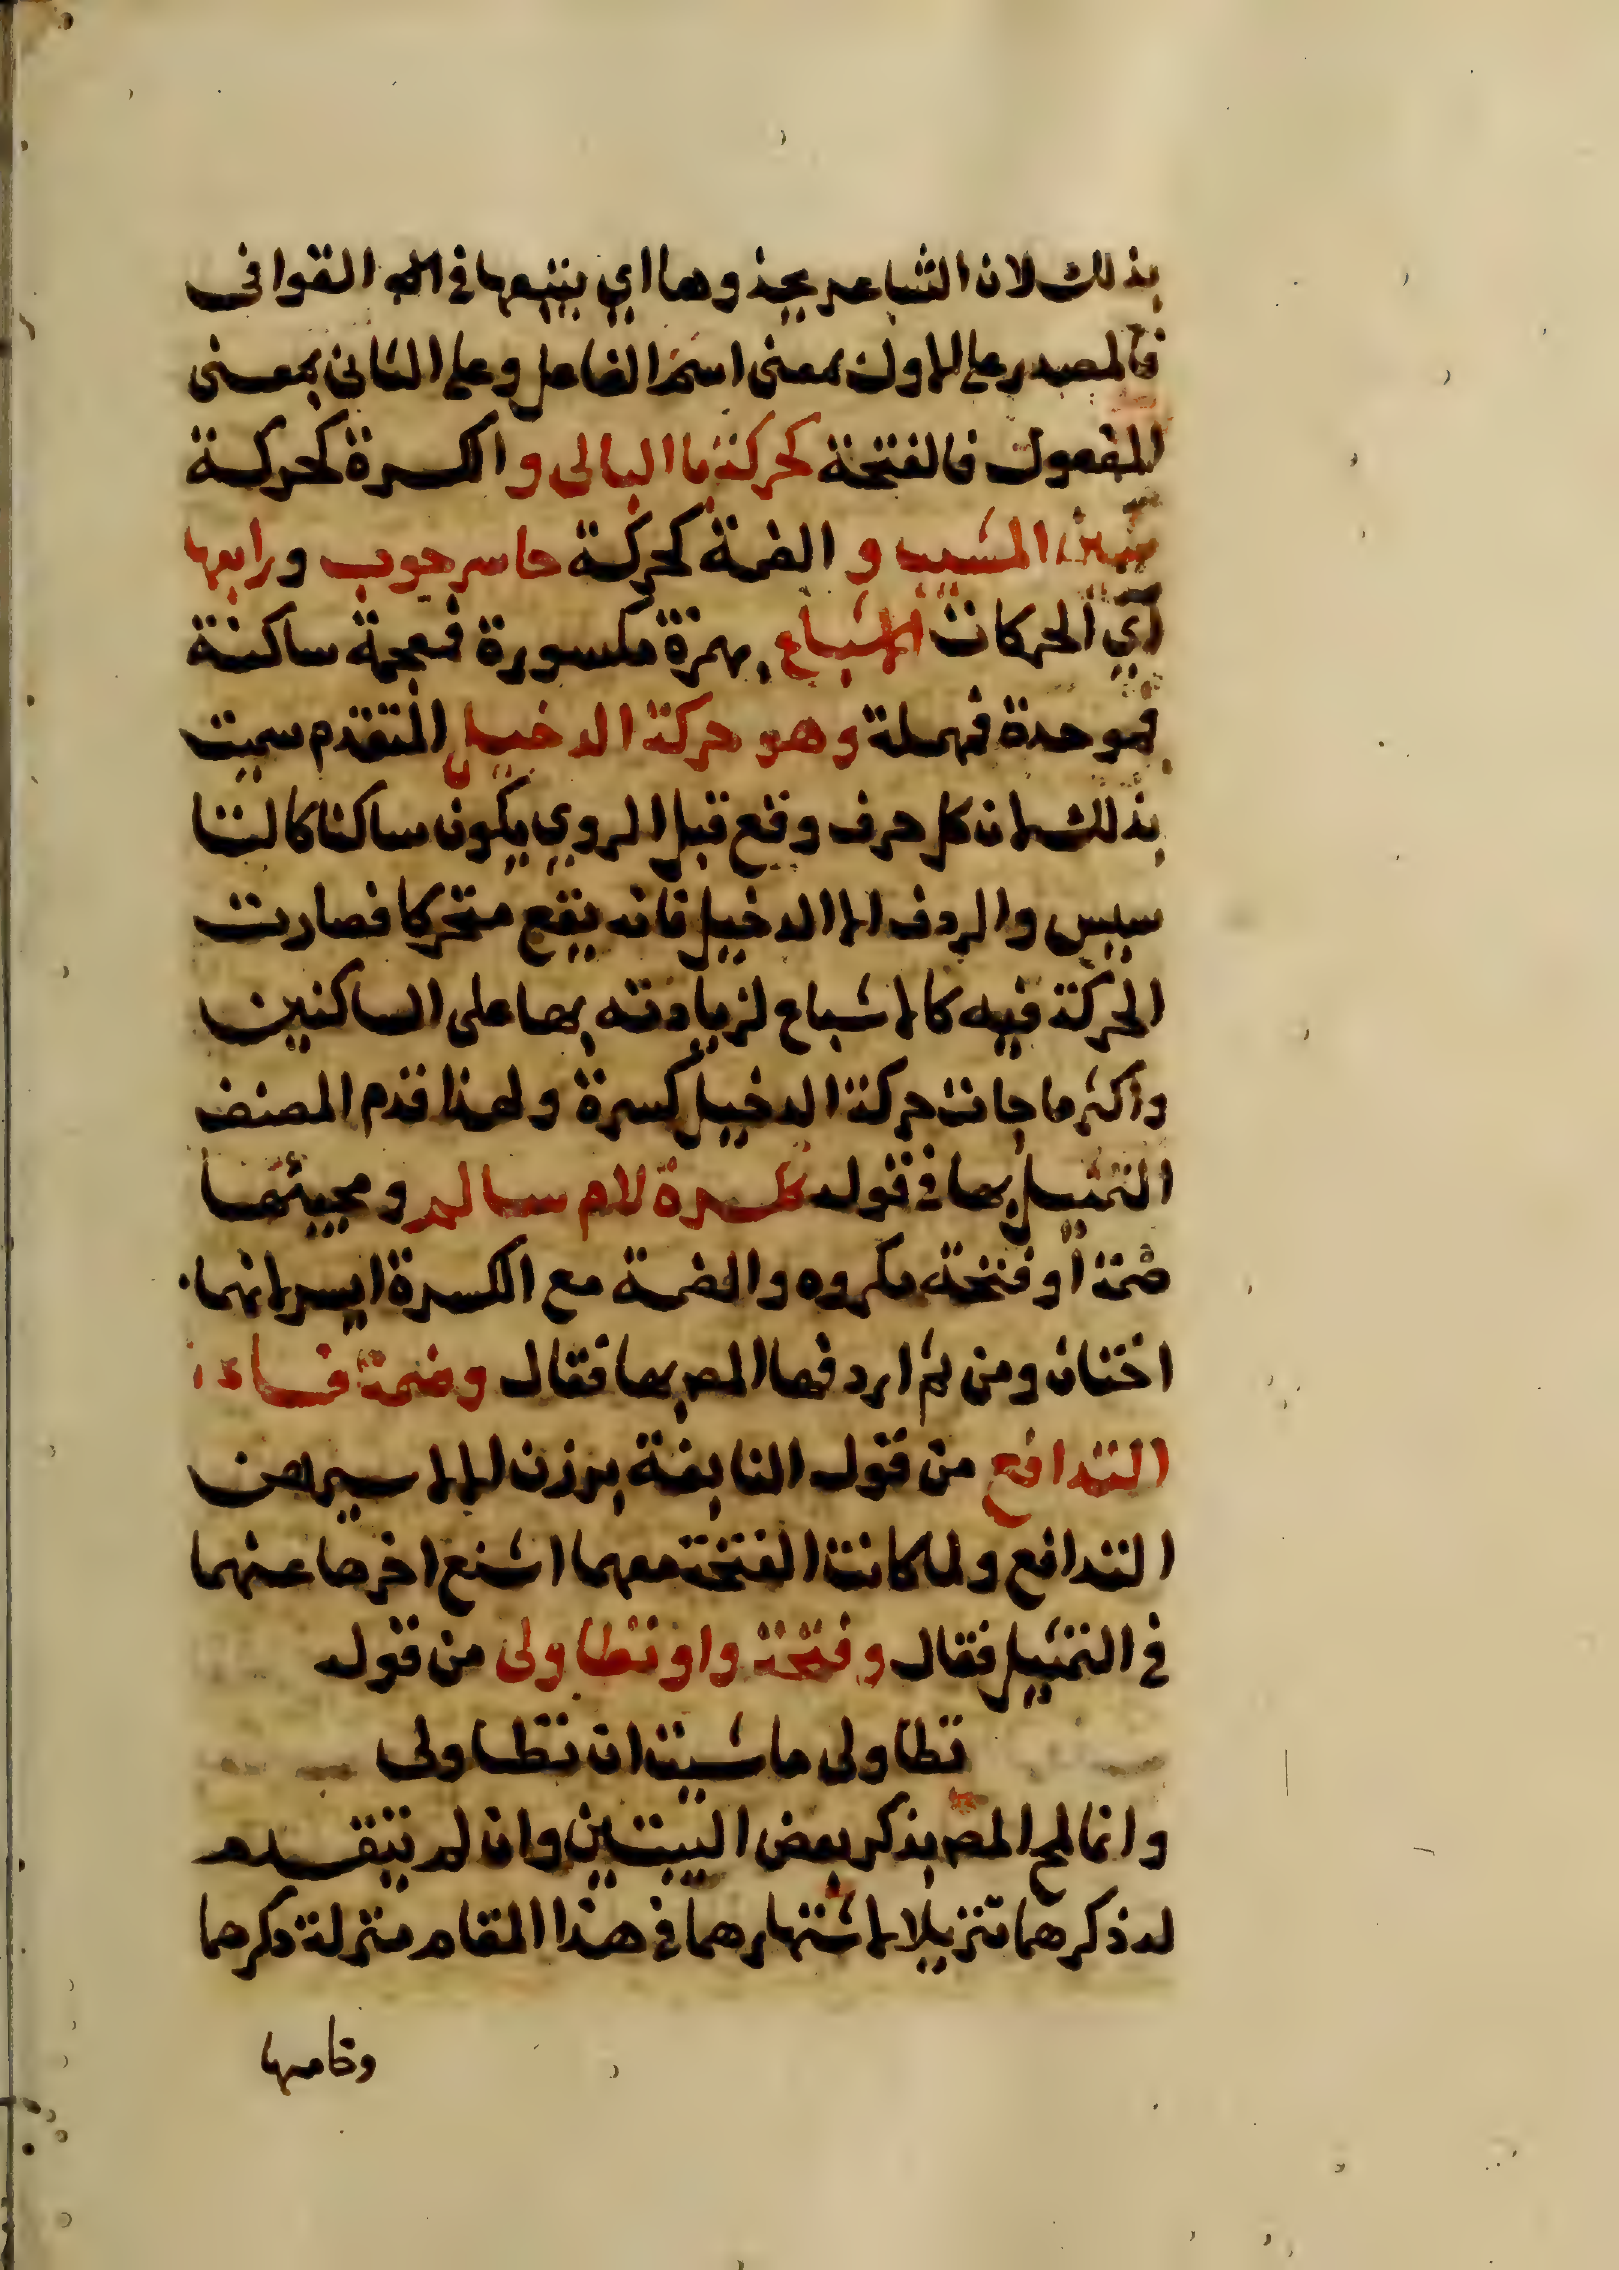 بذلك لان الشاعر يحذوها اي يتبعها في القوافى
فالمصدر على الاول بمعنى اسم الفاعل وعلى الثانى بمعنى
المفعول فالفتحة كحركة با البالى و الكسرة كحركة
شين المشيب و الضمة كحركة حا سرحوب و رابعها
اي الحركات الاشباع بهمزة مكسورة فمعجمة ساكنة
فموحدة فمهملة وهو حركة الدخيل المتقدم سميت
بذلك لان كل حرف وقع قبل الروي يكون ساكنا كالتا
سيس والردف الا الدخيل فانه يقع متحركا فصارت
الحركة فيه كالاشباع لزيادته بها على الساكنين
واكثر ما جات حركة الدخيل كسرة ولهذا قدم المصنف
التمثيل بها في قوله ككسرة لام سالم ومجيئها
ضمة او فتحة مكروه والضمة مع الكسرة ايسر لانهما
اختان ومن ثم اردفها المص بها فقال وضمة فاء
التدافع من قول النابغة يزرن الالا سيرهن
التدافع ولما كانت الفتحة معهما اشنع اخرها عنهما
في التمثيل فقال وفتحة واو تطاولى من قوله
تطاولى ما شيت ان تطاولى
وانما لمح المص بذكر بعض البيتين وان لم يتقدم
له ذكرهما تنزيلا لاشتهارهما في هذا المقام منزلة ذكرهما
وخامسها